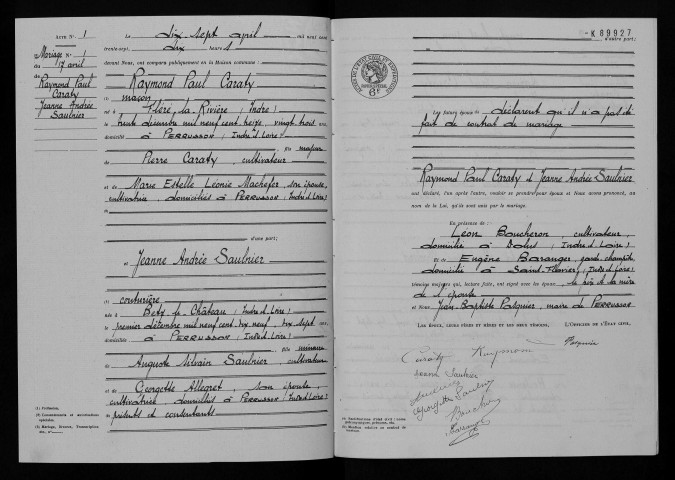 ACTE N° 1
Mariage N° 1
du 17 avril
de
Raymond Paul
Caraty
et
Jeanne Andrée
Saulnier
Le dix sept avril mil neuf cent
trente-sept, dix heures
devant Nous, ont comparu publiquement en la Maison commune :
Raymond Paul Caraty
(1) maçon
né à Fléré-la-Rivière (Indre)
le décembre mil neuf cent treize, vingt trois ans,
domicilié à PERRUSSON (Indre et Loire)
fils majeur
de Pierre Caraty, cultivateur
et de Marie Estelle Léonie Machefer, son épouse,
cultivatrice, domiciliés à PERRUSSON (Indre et Loire)
d'une part;
et Jeanne Andrée Saulnier
(1) couturière
née à Betz-le-Château (Indre et Loire)
le premier décembre mil neuf cent dix neuf, dix sept ans,
domiciliée à PERRUSSON (Indre et Loire)
fille mineure
de Auguste Silvain Saulnier, cultivateur
et de Georgette Allegret, son épouse,
cultivatrice, domiciliés à PERRUSSON (Indre et Loire)
présents et consentants
(1) Profession.
K 89927
d'autre part;
Les futurs époux déclarent qu'il n'a pas été
fait de contrat de mariage
Raymond Paul Caraty et Jeanne Andrée Saulnier
ont déclaré, l'un après l'autre, vouloir se prendre pour époux et Nous avons prononcé, au
nom de la Loi, qu'ils sont unis par le mariage.
En présence de :
Léon Boucheron, cultivateur,
domicilié à Dolus (Indre et Loire)
Et de Eugène Baranger, garde champêtre
domicilié à Saint-Flovier (Indre et Loire)
témoins majeurs qui, lecture faite, ont signé avec les époux, le père et la mère
de l'épouse
et Nous, Jean-Baptiste Patgnier, maire de PERRUSSON
LES ÉPOUX, LEURS PÈRES ET MÈRES ET LES DEUX TÉMOINS,
L'OFFICIER DE L'ÉTAT CIVIL,
Caraty Raymond
Jeanne Saulnier
Saulnier
Georgette Saulnier